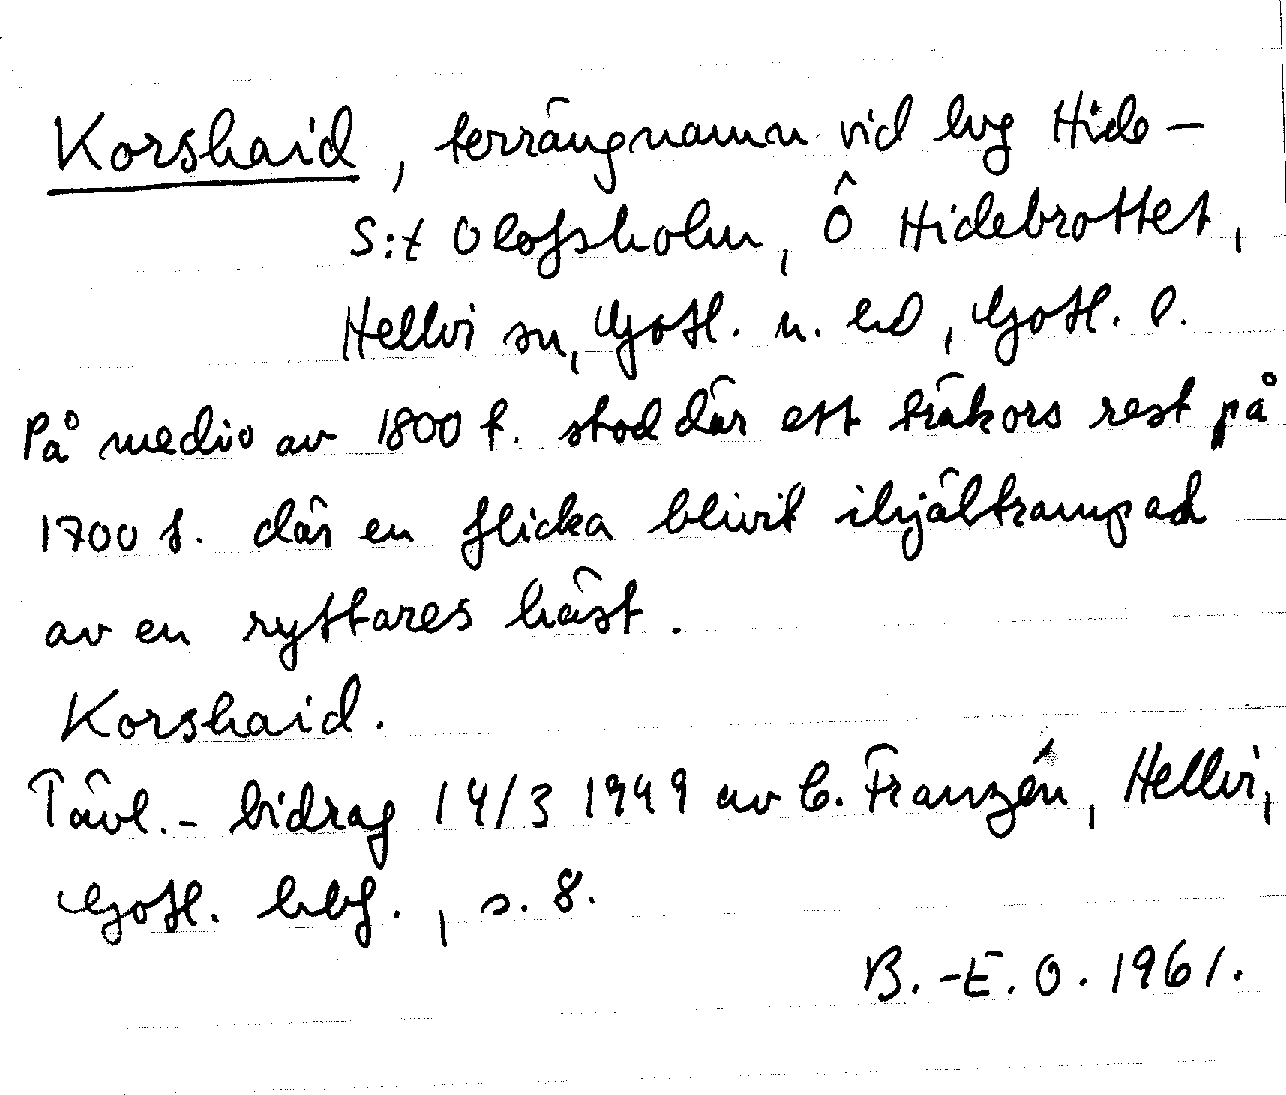 Korshaid, terrängnamn vid lvg Hide –
S:t Olofsholm, Ö Hidebrottet,
Hellvi sn, Gotl. n. hd, Gotl. l.
På medio av 1800 t. stod där ett träkors rest på
1700 t. där en flicka blivit ihjältrampad
av en ryttares häst.
Korshaid.
Tävl. - bidrag 14/3 1949 av C. Franzén, Hellvi,
Gotl. hbf., s. 8.
B.-E. O. 1961.